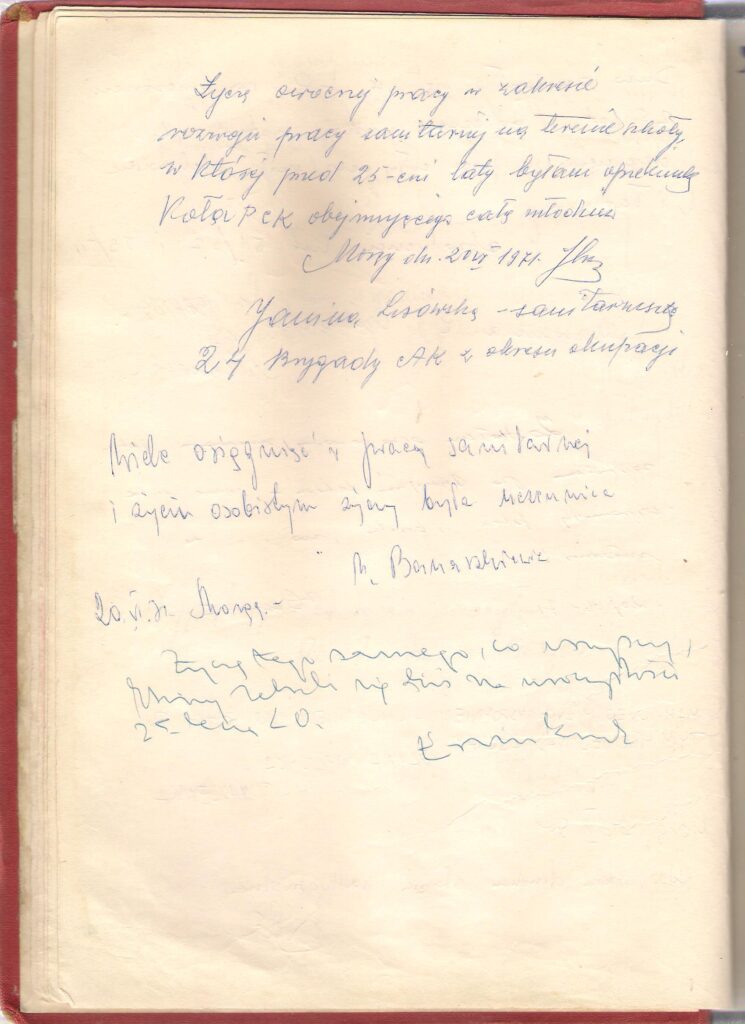 Życzę owocnej pracy w zakresie
rozwoju pracy sanitarnej na terenie szkoły,
w której przed 25-cni laty byłam opiekunką
Koła PCK obejmującego całą młodzież
Morąg dn. 20 VI 1971.
Janina Lisowska - sanitariuszka
24 Brygady AK z okresu okupacji
Wiele osiągnięć w pracy sanitarnej
i życiu osobistym życzy była uczennica
20.VI.71 Morąg.-
Życzę tego samego, co wszyscy,
którzy zebrali się dziś na uroczystości
25-lecia LO.